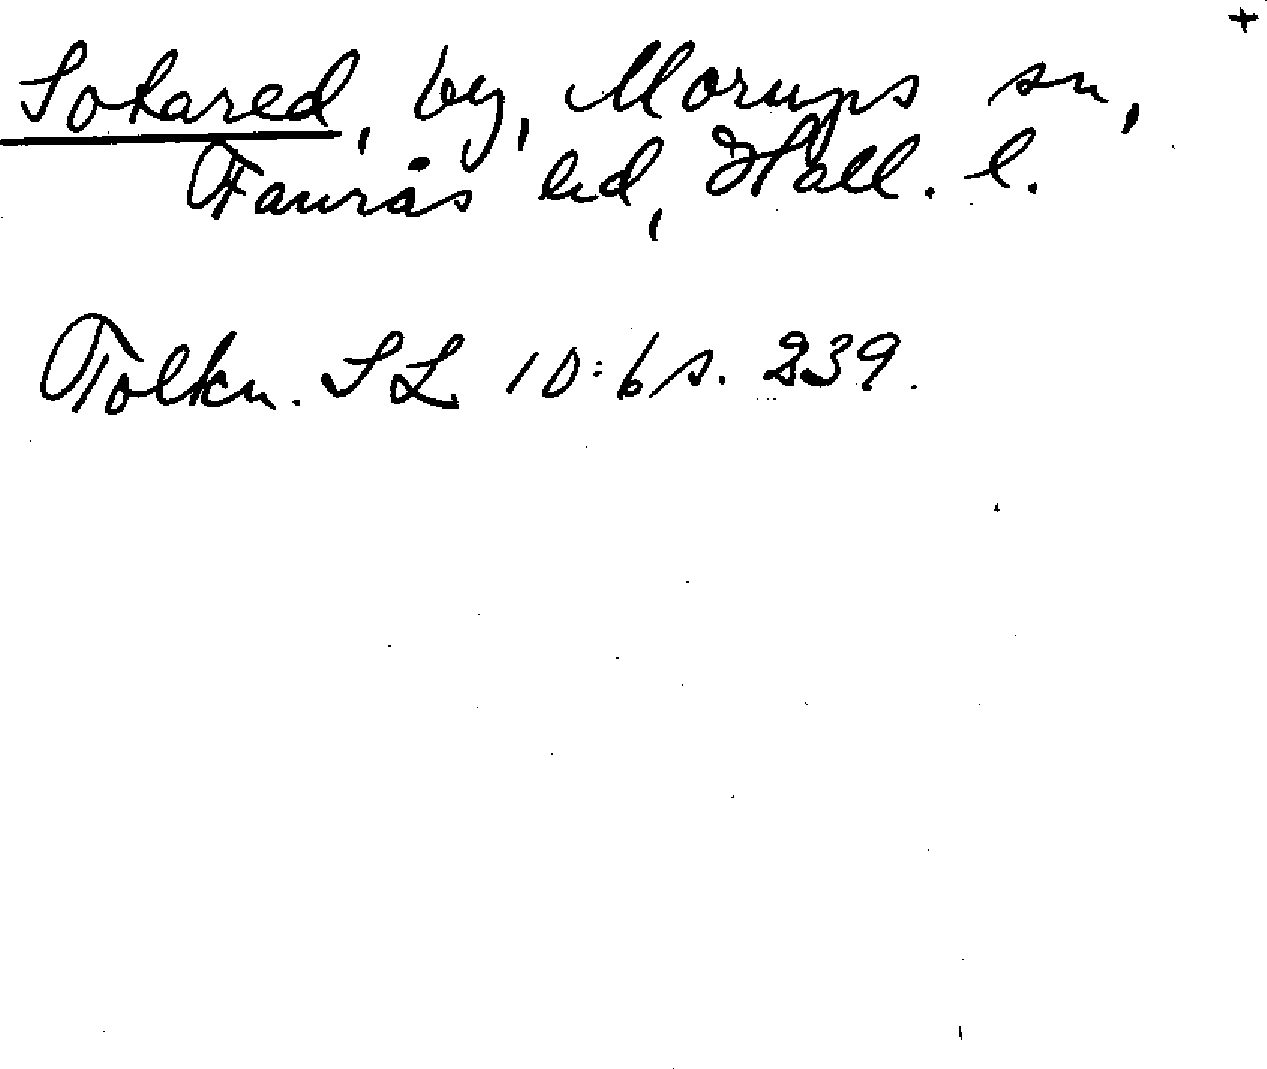 +
Sotared, by, Morups sn,
Faurås hd, Hall. l.
Tolkn. SL 10:6 s. 239.